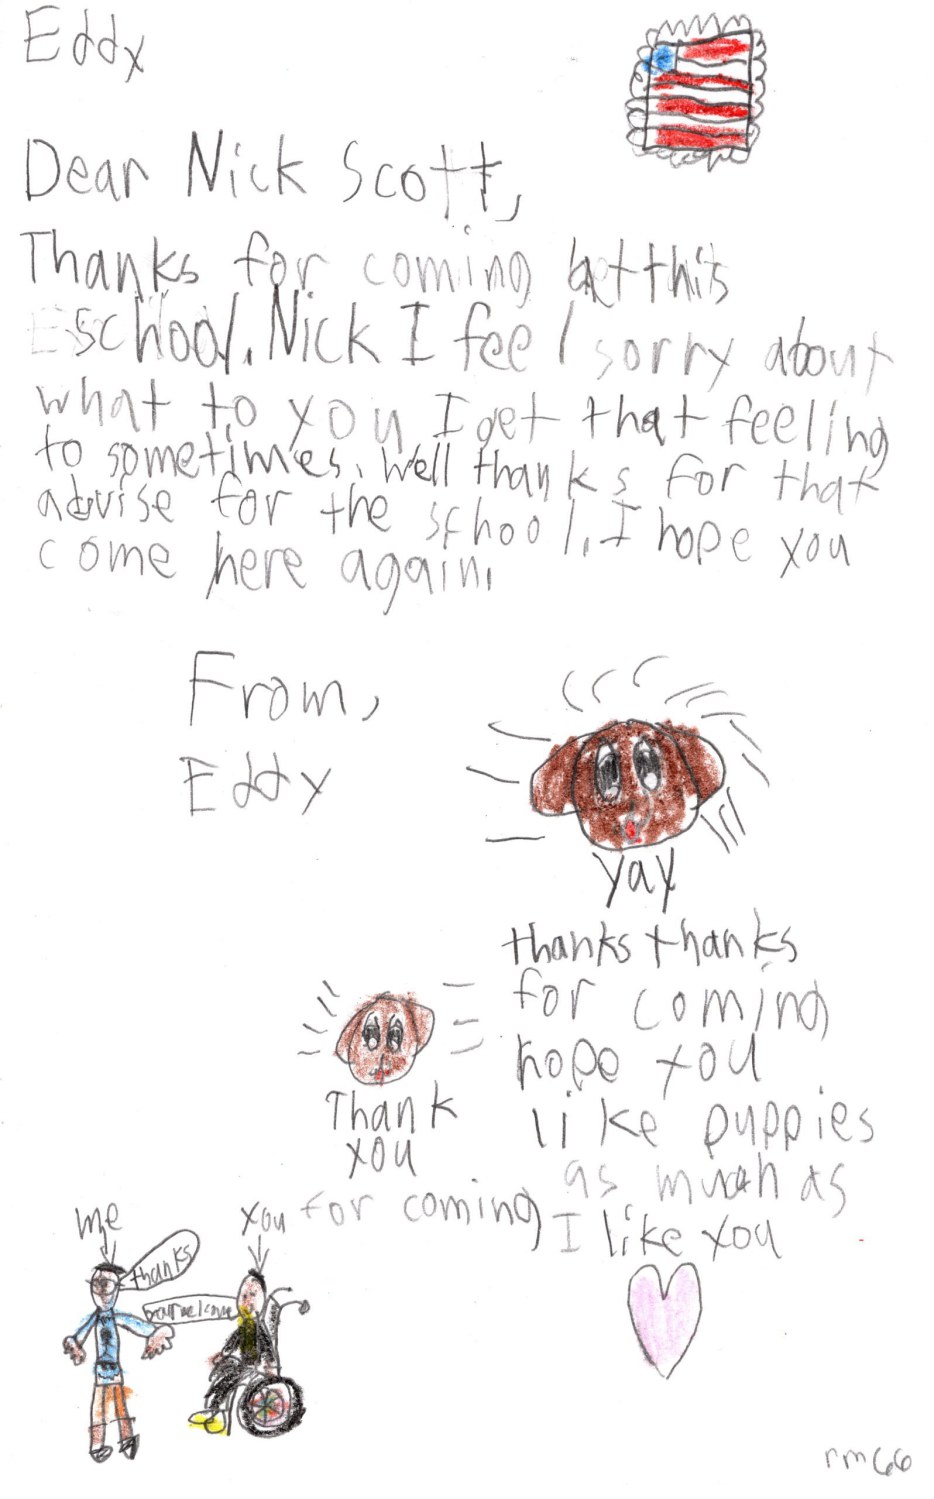 Eddy
Dear Nick Scott,
Thanks for coming at this
school. Nick I feel sorry about
what to you I get that feeling
to sometimes. Well thanks for that
advise for the school. I hope you
come here again.
From,
Eddy
yay
thanks thanks
for coming
hope you
like puppies
as much as
I like you
Thank
you
for coming
me
you
thanks
your welcome
rm 66